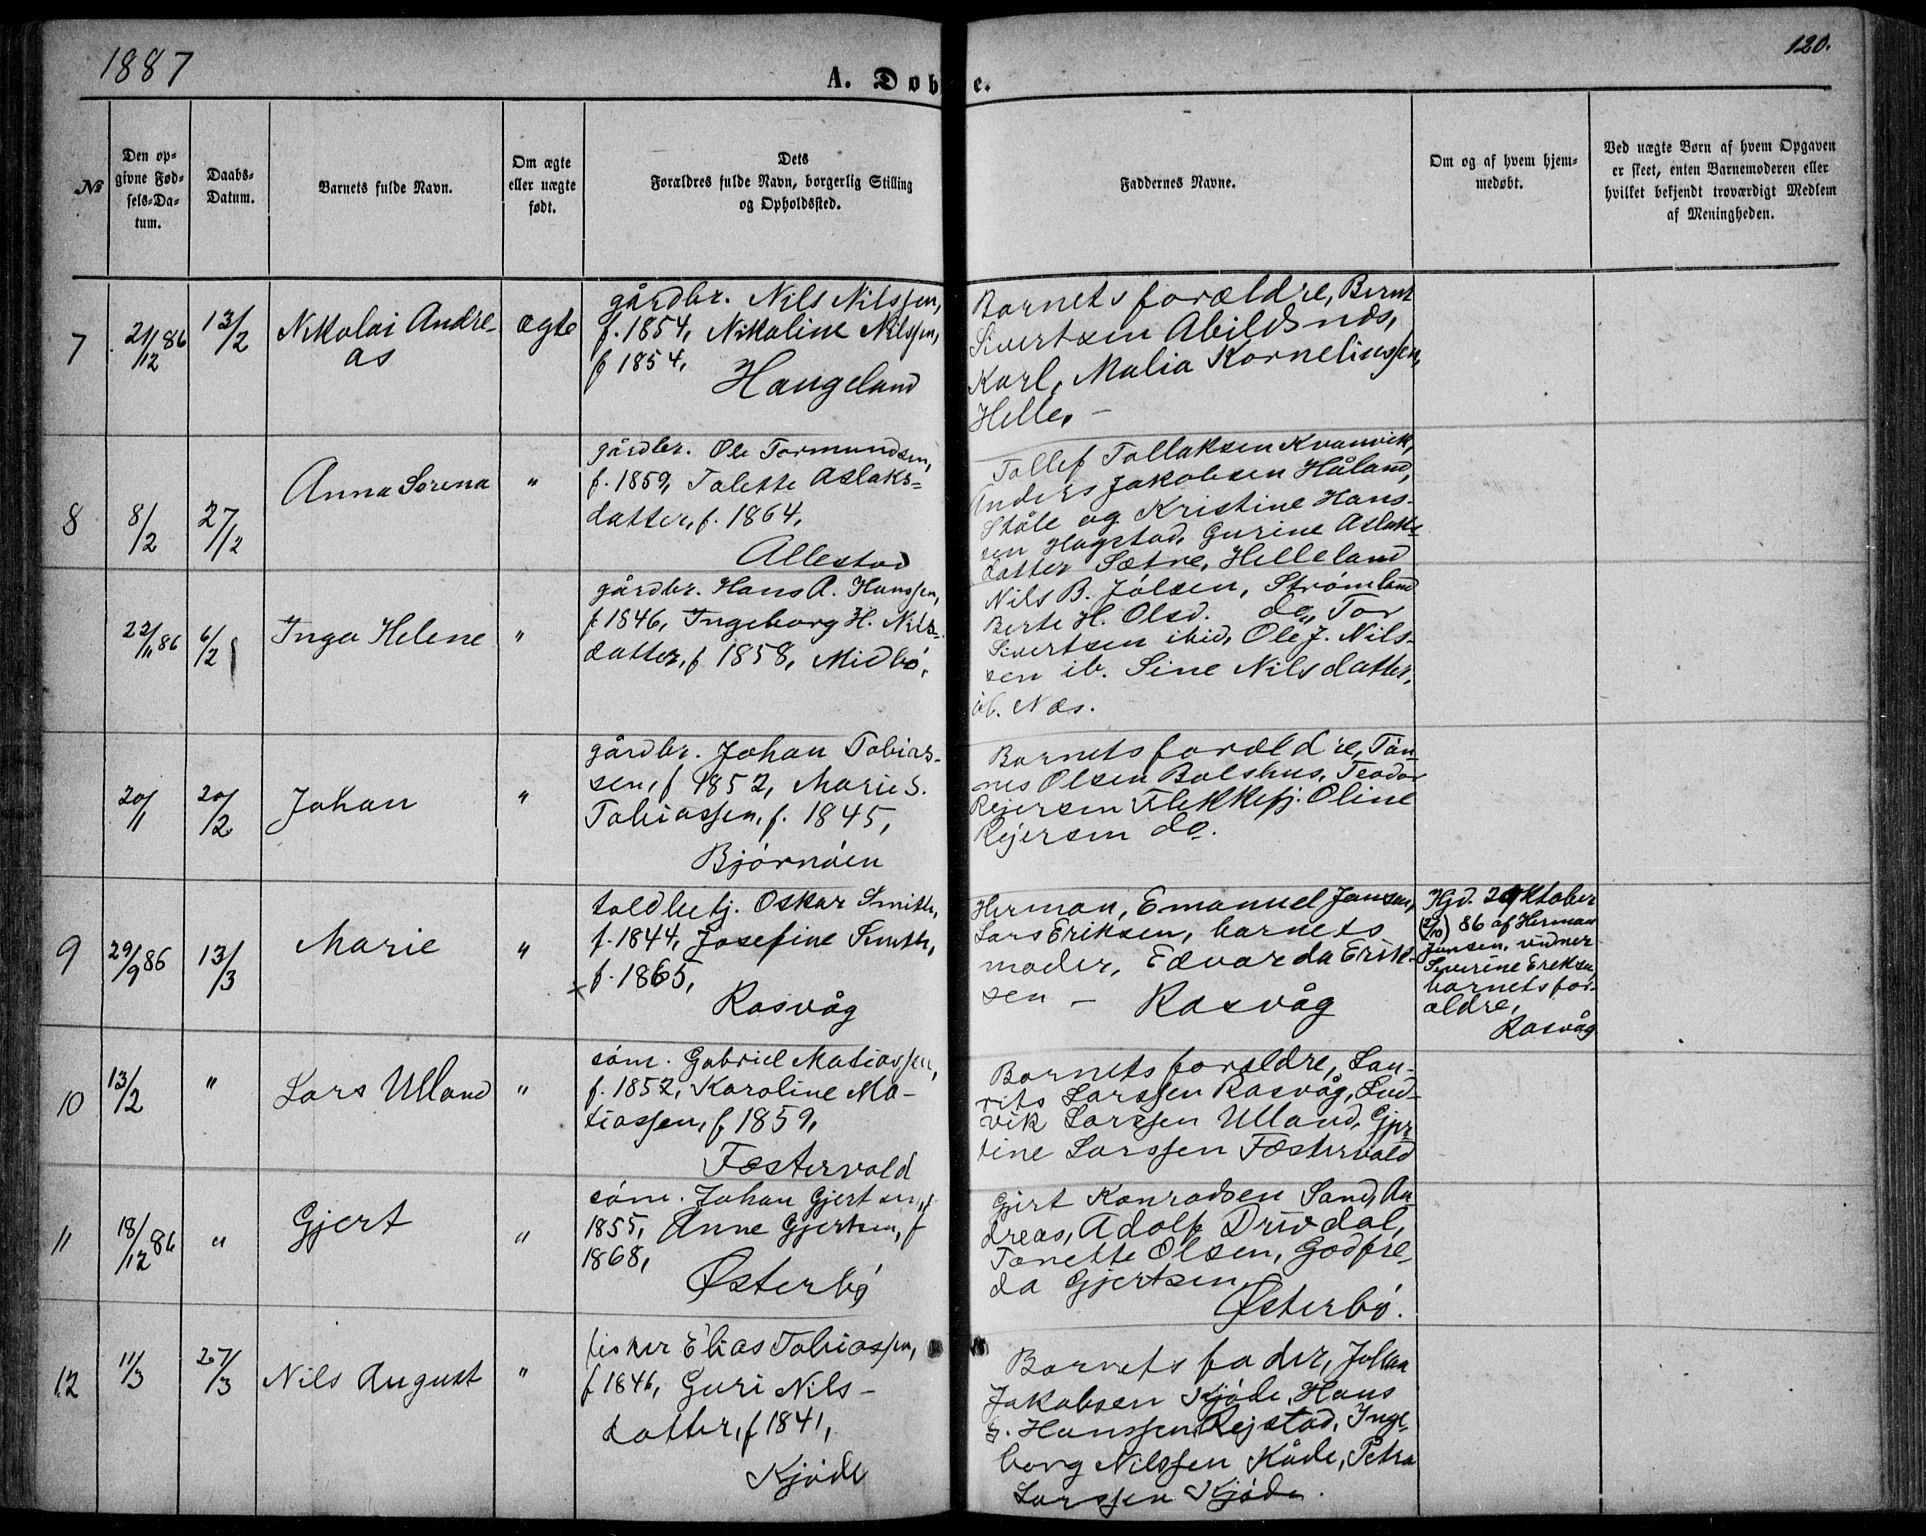 1887
120.
A. Døbte.
No
Den op-
givne Fød-
sels-Da-
tum.
Daabs-
Datum.
Barnets fulde Navn.
Om ægte
eller uægte
født.
Dets
Forældres fulde Navn, borgerlig Stilling
og Opholdssted.
Faddernes Navne.
Om og af hvem hjem-
medøbt.
Ved uægte Børn af hvem Opgaven
er skeet, enten Barnemoderen eller
hvilket bekjendt troværdigt Medlem
af Meningheden.
7
21/12 86
13/2
Nikolai Andre-
as
ægte
gårdbr. Nils Nilssen,
f. 1854, Nikoline Nilssen,
f 1854,
Haugeland
Barnets forældre, Bernt
Sivertsen Abildsnæs,
Karl, Malia Korneliussen,
Helle, -
8
8/2
27/2
Anna Sorena
"
gårdbr. Ole Tormundsen,
f. 1859, Talette Aslaks=
datter, f. 1864,
Allestad
Tollef Tollaksen Kvanvik,
Anders Jakobsen Håland,
Ståle og Kristine Hans-
sen Hagstad, Gurine Aslaks-
datter Sætre, Helleland
22/11 86
6/2
Inga Helene
"
gårdbr. Hans A. Hanssen,
f. 1846, Ingeborg H. Nils-
datter, f 1858, Midbö,
Nils B. Jölsen, Strømland
Berte H. Olsd. do, Tor
Sivertsen ibid, Ole J. Nils-
sen ib. Sine Nilsdatter,
ib. Næs.
20/1
20/2
Johan
"
gårdbr. Johan Tobias-
sen, f 1852, Marie S.
Tobiassen, f. 1845,
Bjórnóen
Barnets forældre, Tön-
nes Olsen Bolshus, Teodor
Rejersen Flekkefj. Oline
Rejersen do.
9
29/9 86
13/3
Marie
"
toldbetj. Oskar Smith,
f. 1844, Josefine Smith,
x f. 1865,
Rasvåg
Herman, Emanuel Jansen,
Lars Eriksen, barnets
moder, Edvarda Erik-
sen - Rasvåg
Hjd. 2 Oktober
(2/10) 86 af Herman
Jansen, vidner
Severine Eriksen,
barnets for-
ældre,
Rasvåg
10
13/2
"
Lars Ulland
"
sóm. Gabriel Matiassen,
f. 1852, Karoline Ma-
tiassen, f 1859,
Fæstervold
Barnets forældre, Lau-
rits Larssen Rasvåg, Lud-
vik Larssen Ulland, Gjer-
tine Larssen Fæstervold
11
18/12 86
"
Gjert
"
sóm. Johan Gjertsen, f
1855, Anne Gjertsen, f
1868,
Østerbó
Gjert Konradsen Sand, An
dreas, Adolf Drivdal,
Tonette Olsen, Godfre-
da Gjertsen
Østerbó.
12
11/3
27/3
Nils August
"
fisker Elias Tobiassen,
f 1846, Guri Nils-
datter, f 1841,
Kjóde
Barnets fader, Johan
Jakobsen Kjóde, Hans
G. Hanssen Rejstad, Inge-
borg Nilssen Kåde, Petra
Larssen Kjóde.